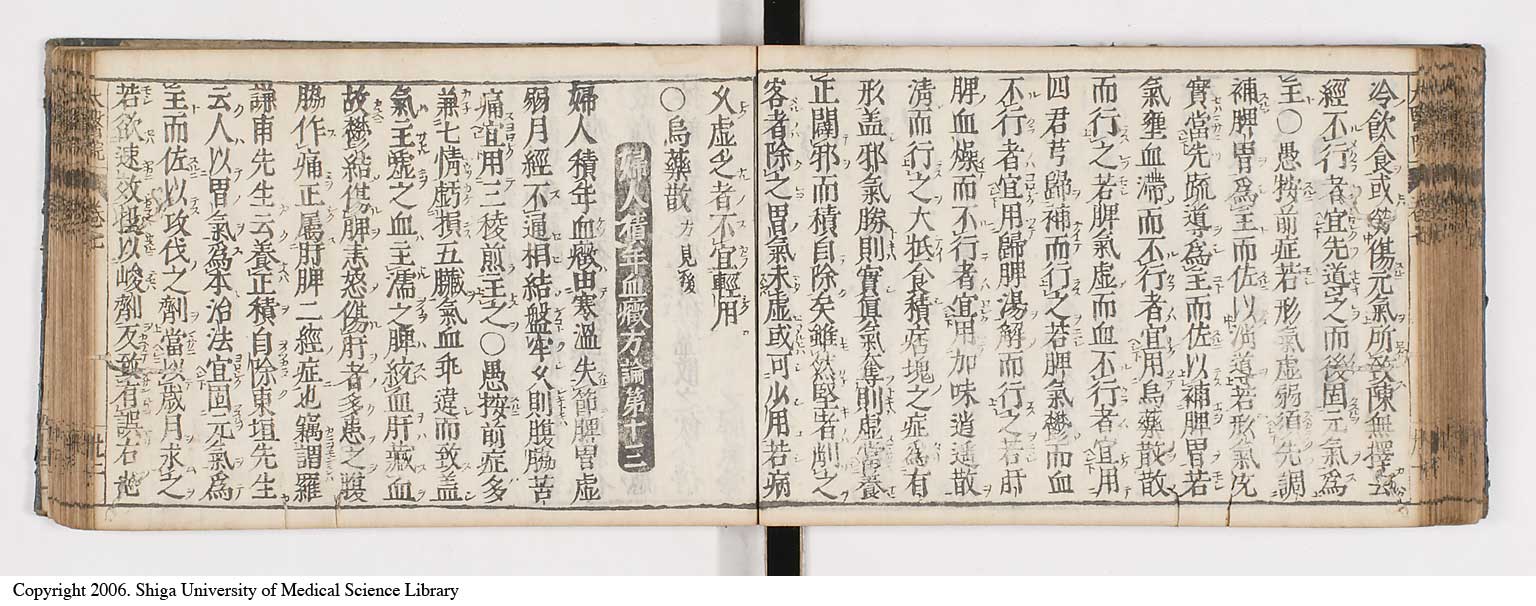 冷飲食或勞傷元氣所致陳無擇云
經不行者宜先導之而後固元氣爲
主〇愚按前症若形氣虚弱須先調
補脾胃爲主而佐以消導若形氣充
實當先疏導爲主而佐以補脾胃若
氣壅血滯而不行者宜用烏藥散散
而行之若脾氣虚而血不行者宜用
四君芎歸補而行之若脾氣鬱而血
不行者宜用歸脾湯解而行之若肝
脾血燥而不行者宜用加味逍遥散
清而行之大抵食積痞塊之症爲有
形盖邪氣勝則實眞氣奪則虚當養
正闢邪而積自除矣雖然堅者削之
客者除之胃氣未虚或可少用若病
乆虚乏者不宜輕用
〇烏藥散方見後
婦人積年血癥方論第十三
婦人積年血癥由寒温失節脾胃虚
弱月經不通相結盤牢乆則腹脇苦
痛宜用三稜煎主之〇愚按前症多
兼七情虧損五臟氣血乖違而致盖
氣主嘘之血主濡之脾統血肝藏血
故鬱結傷脾恚怒傷肝者多患之腹
脇作痛正屬肝脾二經症也竊謂羅
謙甫先生云養正積自除東垣先生
云人以胃氣爲本治法宜固元氣爲
主而佐以攻伐之劑當以歳月求之
若欲速效投以峻劑反致有誤石
Copyright 2006. Shiga University of Medical Science Library